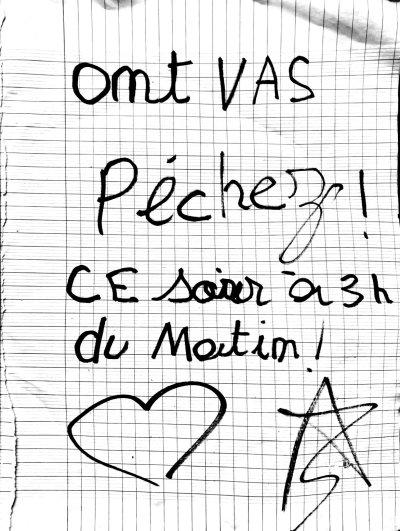 ont VAS
Péchez !
CE soir à 3h
du Matin !